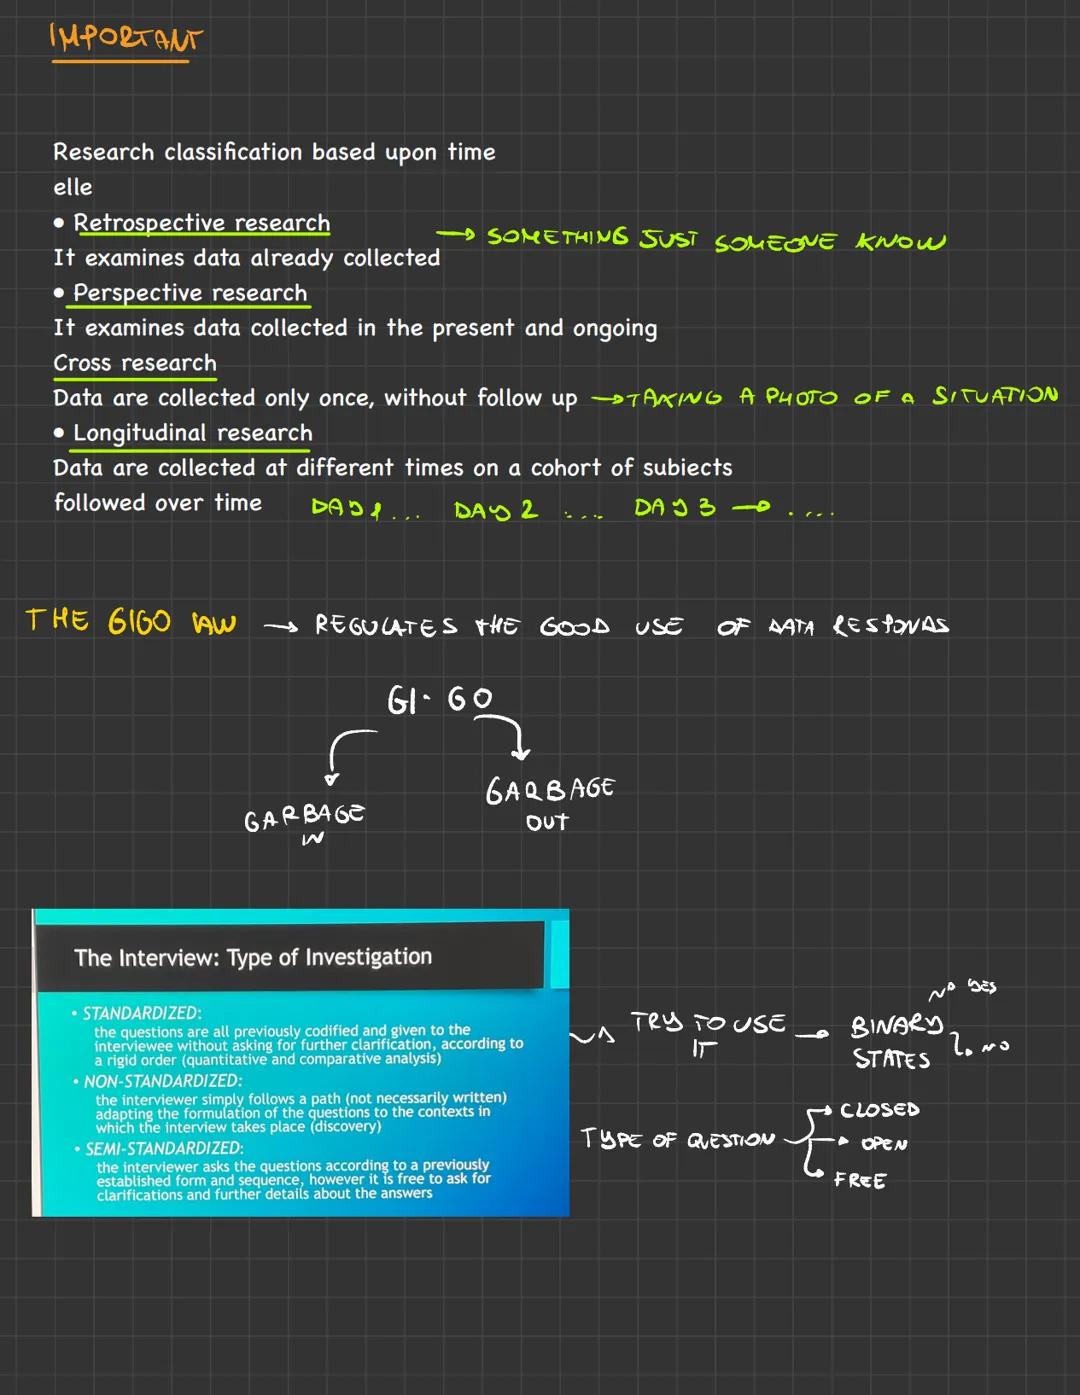 IMPORTANT
Research classification based upon time
elle
• Retrospective research
→ SOMETHING JUST SOMEONE KNOW
It examines data already collected
• Perspective research
It examines data collected in the present and ongoing
Cross research
Data are collected only once, without follow up → TAKING A PHOTO OF A SITUATION
• Longitudinal research
Data are collected at different times on a cohort of subiects
followed over time DAY 1 ... DAY 2 .... DAY 3 → ....
THE GIGO LAW → REGULATES THE GOOD USE OF DATA
GI · GO
GARBAGE
IN
GARBAGE
OUT
The Interview: Type of Investigation
• STANDARDIZED:
the questions are all previously codified and given to the
interviewee without asking for further clarification, according to
a rigid order (quantitative and comparative analysis)
• NON-STANDARDIZED:
the interviewer simply follows a path (not necessarily written)
adapting the formulation of the questions to the contexts in
which the interview takes place (discovery)
• SEMI-STANDARDIZED:
the interviewer asks the questions according to a previously
established form and sequence, however it is free to ask for
clarifications and further details about the answers
TRY TO USE
IT
→ BINARY
STATES
YES
NO
TYPE OF QUESTION
→ CLOSED
→ OPEN
→ FREE